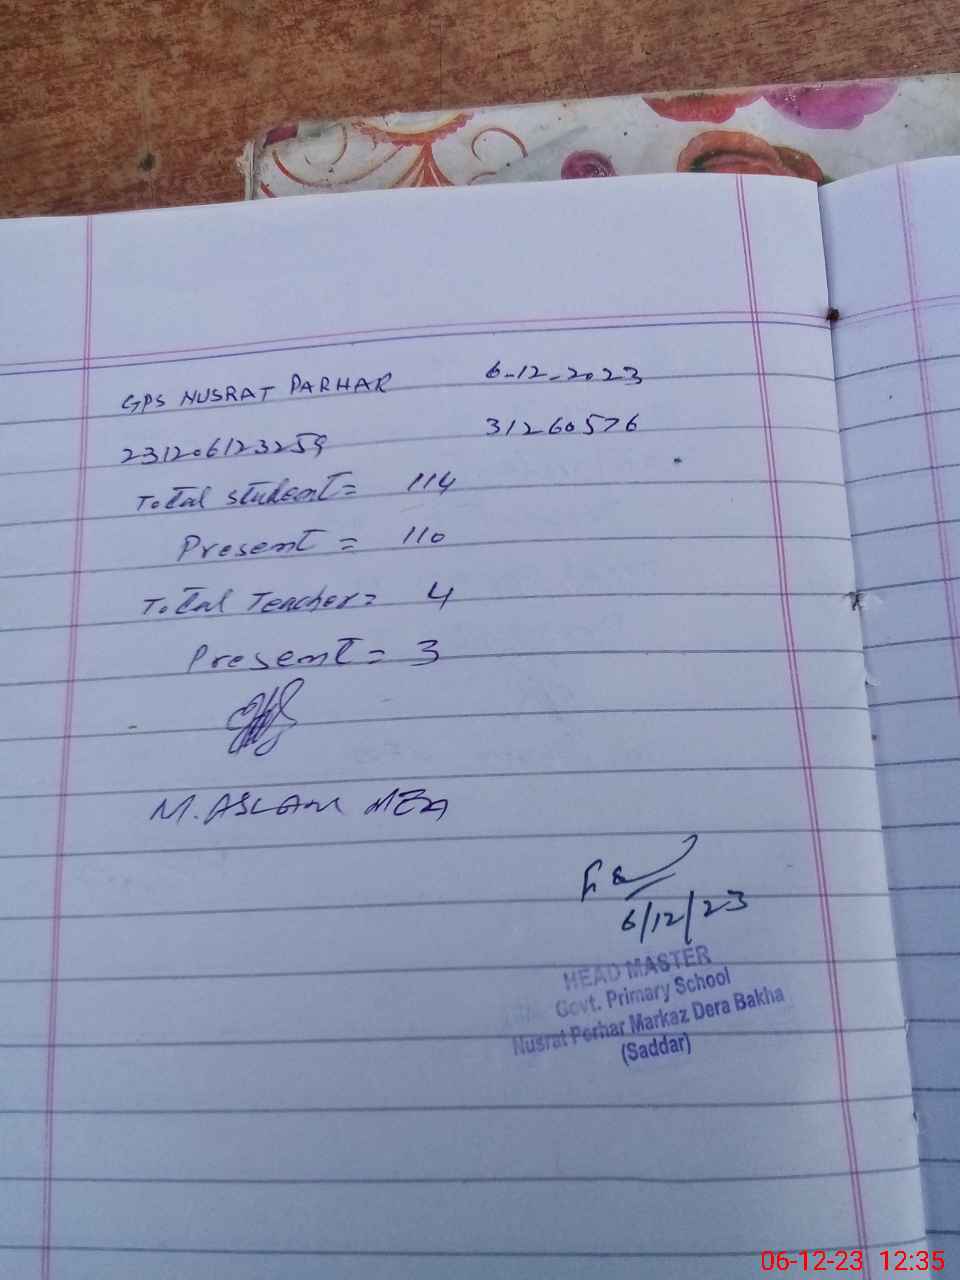 GPS NUSRAT PARHAR 6-12-2023
231206123259 31260576
Total student= 114
Present = 110
Total Teacher= 4
Present = 3
M. ASLAM MEA
6/12/23
HEAD MASTER
Govt. Primary School
Nusrat Perhar Markaz Dera Bakha
(Saddar)
06-12-23 12:35